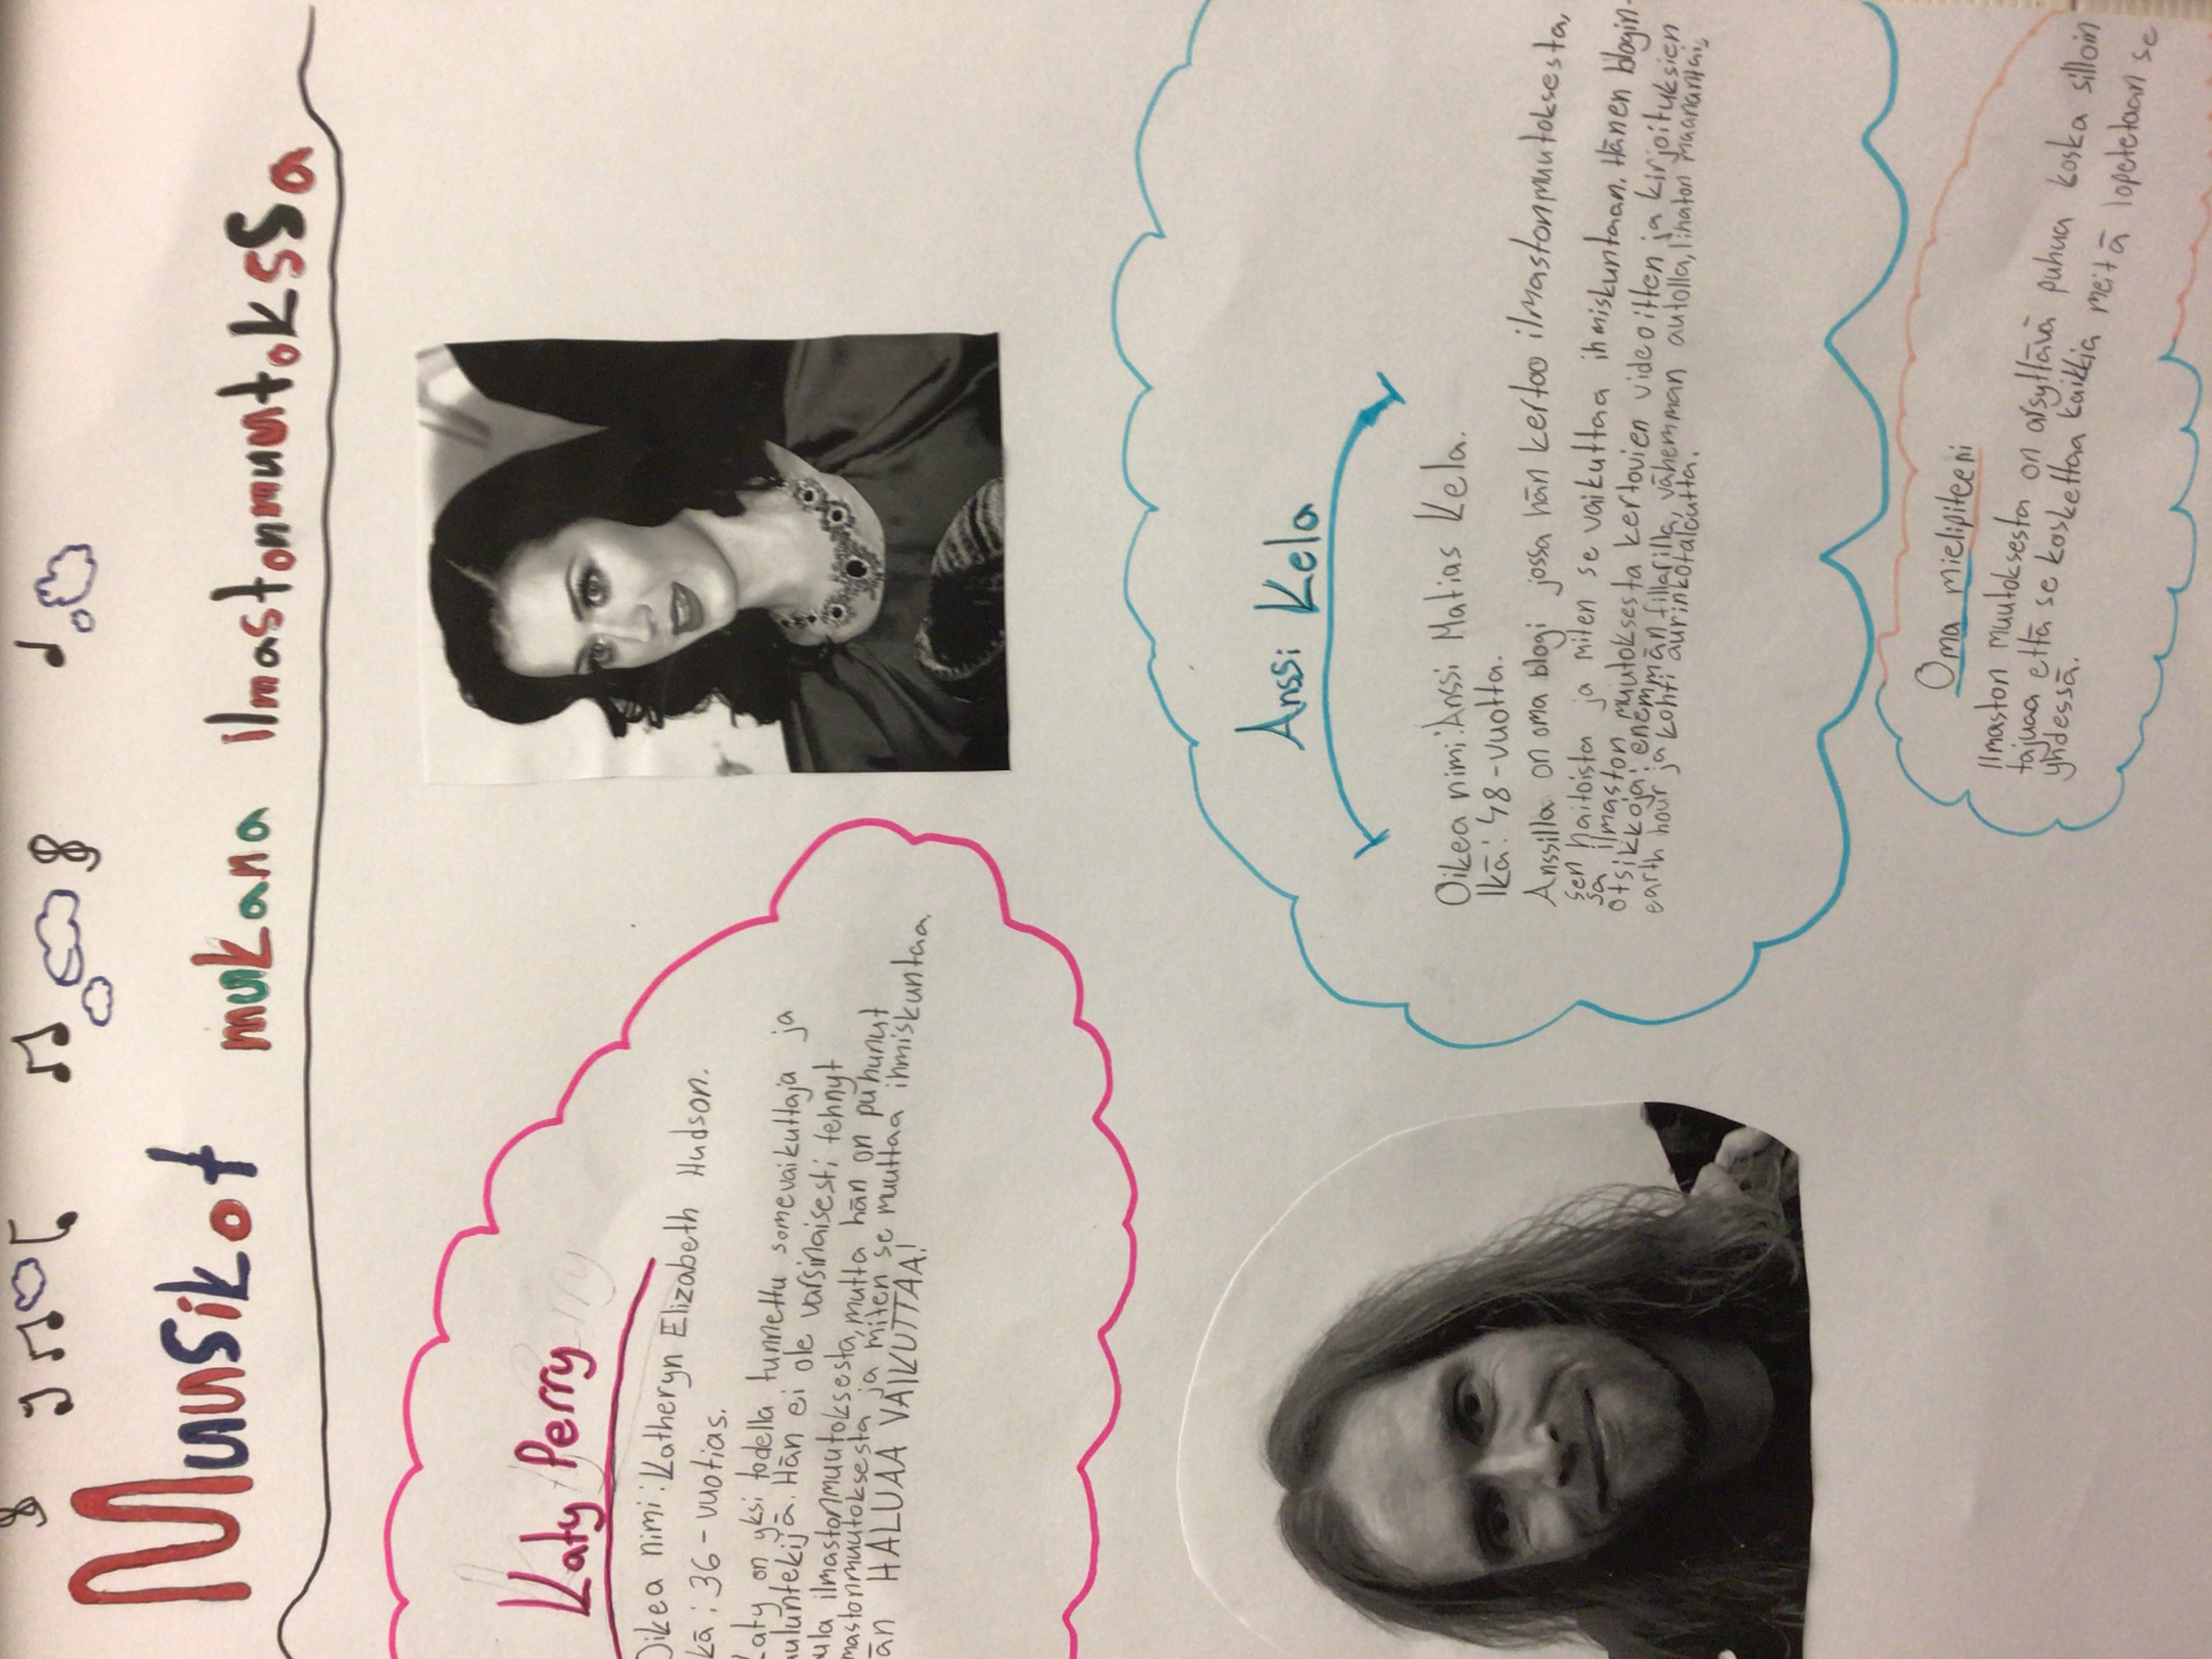 Muusikot mukana ilmastonmuutoksessa
Katy Perry
Oikea nimi: Katheryn Elizabeth Hudson.
kä: 36-vuotias.
Katy on yksi todella tunnettu somevaikuttaja ja
auluntekijä. Hän ei ole varsinaisesti tehnyt
ula ilmastonmuutoksesta, mutta hän on puhunut
mastonmuutoksesta ja miten se muuttaa ihmiskuntaa.
än HALUAA VAIKUTTAA!
Anssi Kela
Oikea nimi: Anssi Matias Kela.
Ikä: 48-vuotta.
Anssilla on oma blogi jossa hän kertoo ilmastonmuutoksesta,
sen haitoista ja miten se vaikuttaa ihmiskuntaan. Hänen blogin-
sa ilmaston muutoksesta kertovien videoitten ja kirjoituksien
otsikkoja: enemmän fillarilla, vähemmän autolla, lihaton maanantai,
earth hour ja kohti aurinkotaloutta.
Oma mielipiteeni
Ilmaston muutoksesta on ärsyttävä puhua koska silloin
tajuaa että se koskettaa kaikkia meitä lopetetaan se
yhdessä.